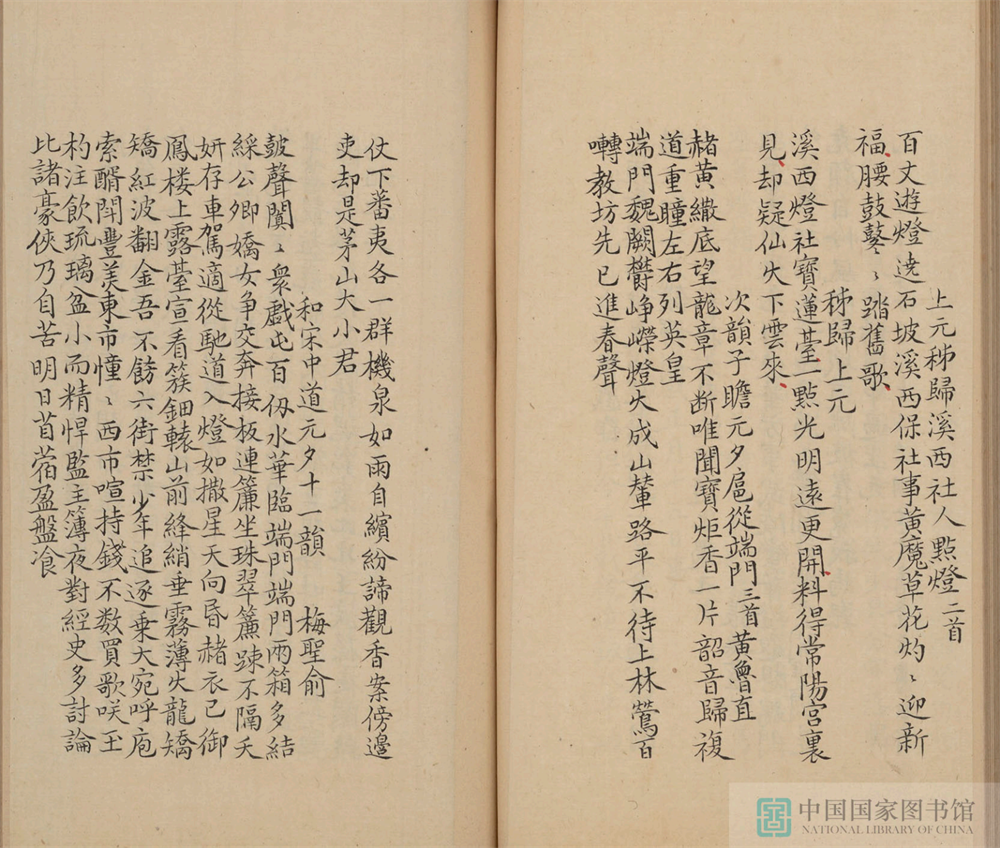 上元秭歸溪西社人點燈二首
百丈遊燈遶石坡溪西保社事黃魔草花灼〻迎新
福腰鼓鼕〻踏舊歌
秭歸上元
溪西燈社寶蓮臺一點光明遠更開料得常陽宮裏
見却疑仙火下雲來
次韻子瞻元夕扈從端門三首黃魯直
赭黃繖底望龍章不断唯聞寶炬香一片韶音歸複
道重瞳左右列英皇
端門魏闕欝峥嶸燈火成山輦路平不待上林鶯百
囀教坊先已進春聲
仗下番夷各一群機泉如雨自繽紛諦觀香案傍邊
吏却是茅山大小君
和宋中道元夕十一韻 梅聖俞
皷聲闐〻衆戲屯百仭水華臨端門端門兩箱多結
綵公卿嬌女争交奔接板連簾坐珠翠簾踈不隔夭
妍存車駕適從馳道入燈如撒星天向昏赭衣已御
鳳楼上露臺宣看簇鈿轅山前絳綃垂霧薄火龍矯
矯紅波翻金吾不飭六街禁少年追逐乗大宛呼庖
索醑閗豐美東市憧〻西市喧持錢不数買歌咲玉
杓注飲琉璃盆小而精悍監主簿夜對經史多討論
比諸豪俠乃自苦明日苜蓿盈盤飡
中国国家图书馆
NATIONAL LIBRARY OF CHINA